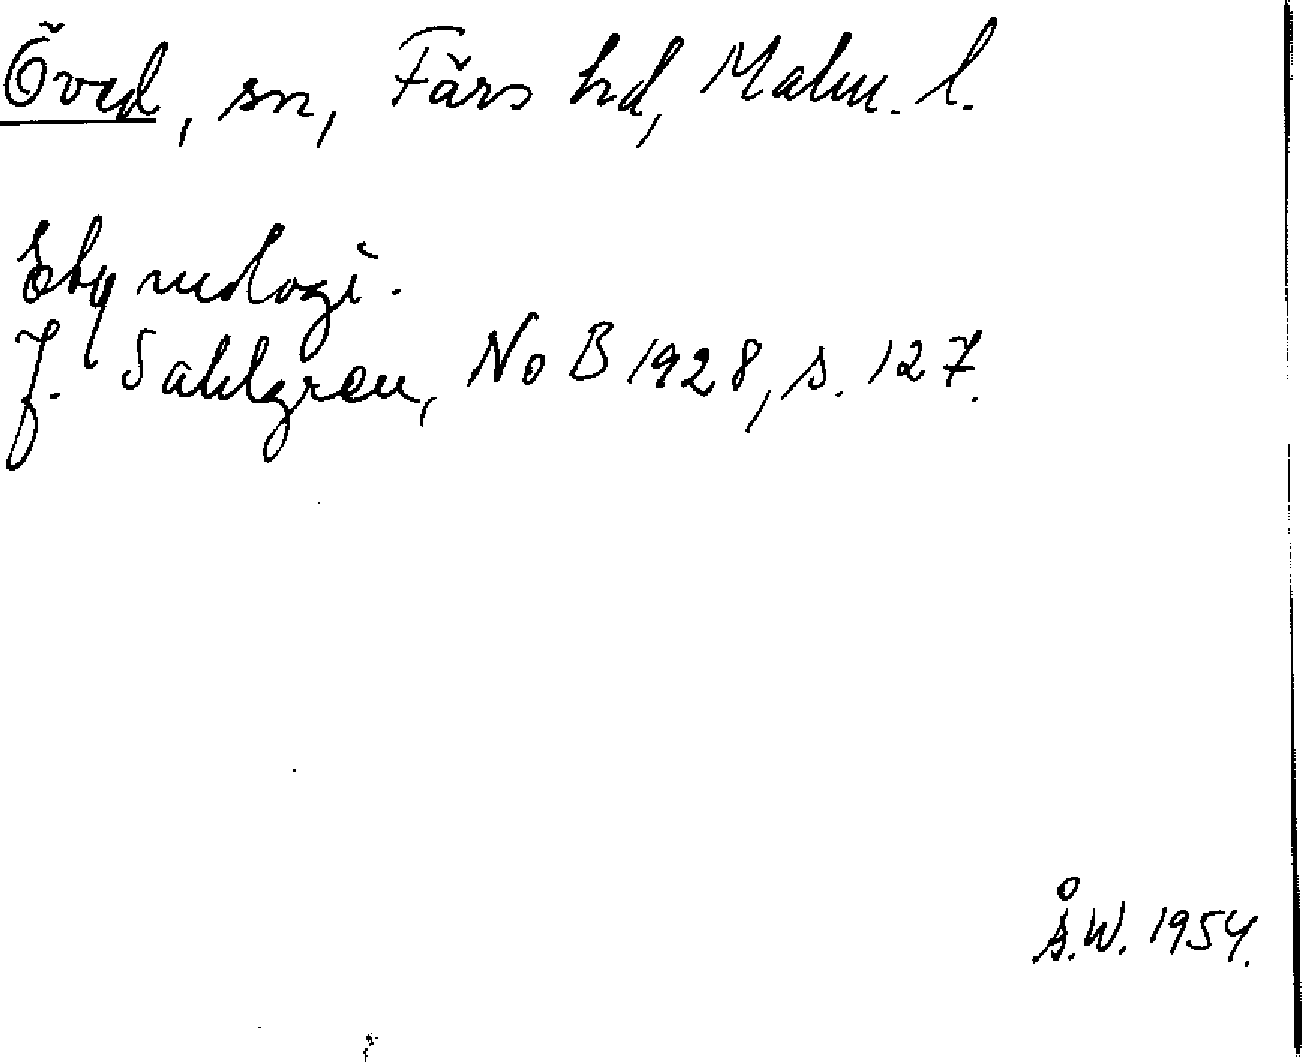 Öved, sn, Färs hd, Malm. l.
Etymologi.
J. Sahlgren, NoB 1928, s. 127.
Å.W. 1954.